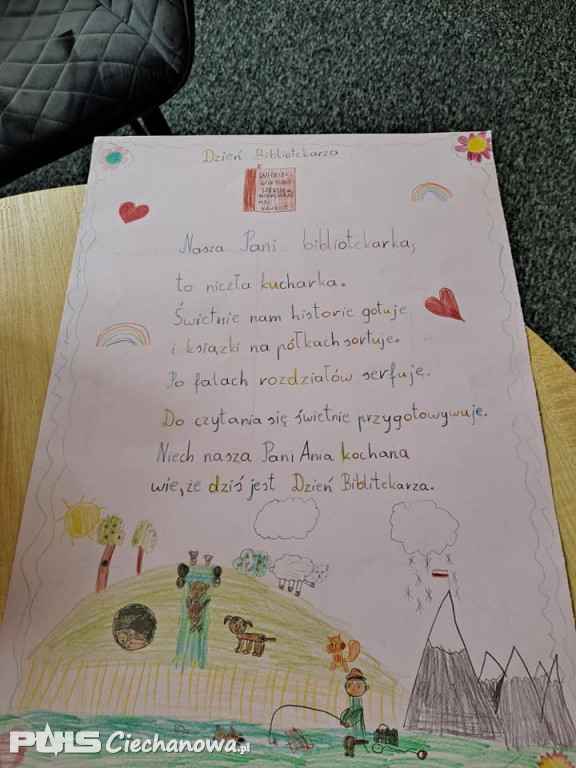 Dzień Bibliotekarza
Nasza Pani bibliotekarka,
to niezła kucharka.
Świetnie nam historie gotuje
i książki na półkach sortuje.
Po falach rozdziałów serfuje.
Do czytania się świetnie przygotowywuje.
Niech nasza Pani Ania kochana
wie, że dziś jest Dzień Biblitekarza.
PULS Ciechanowa.pl